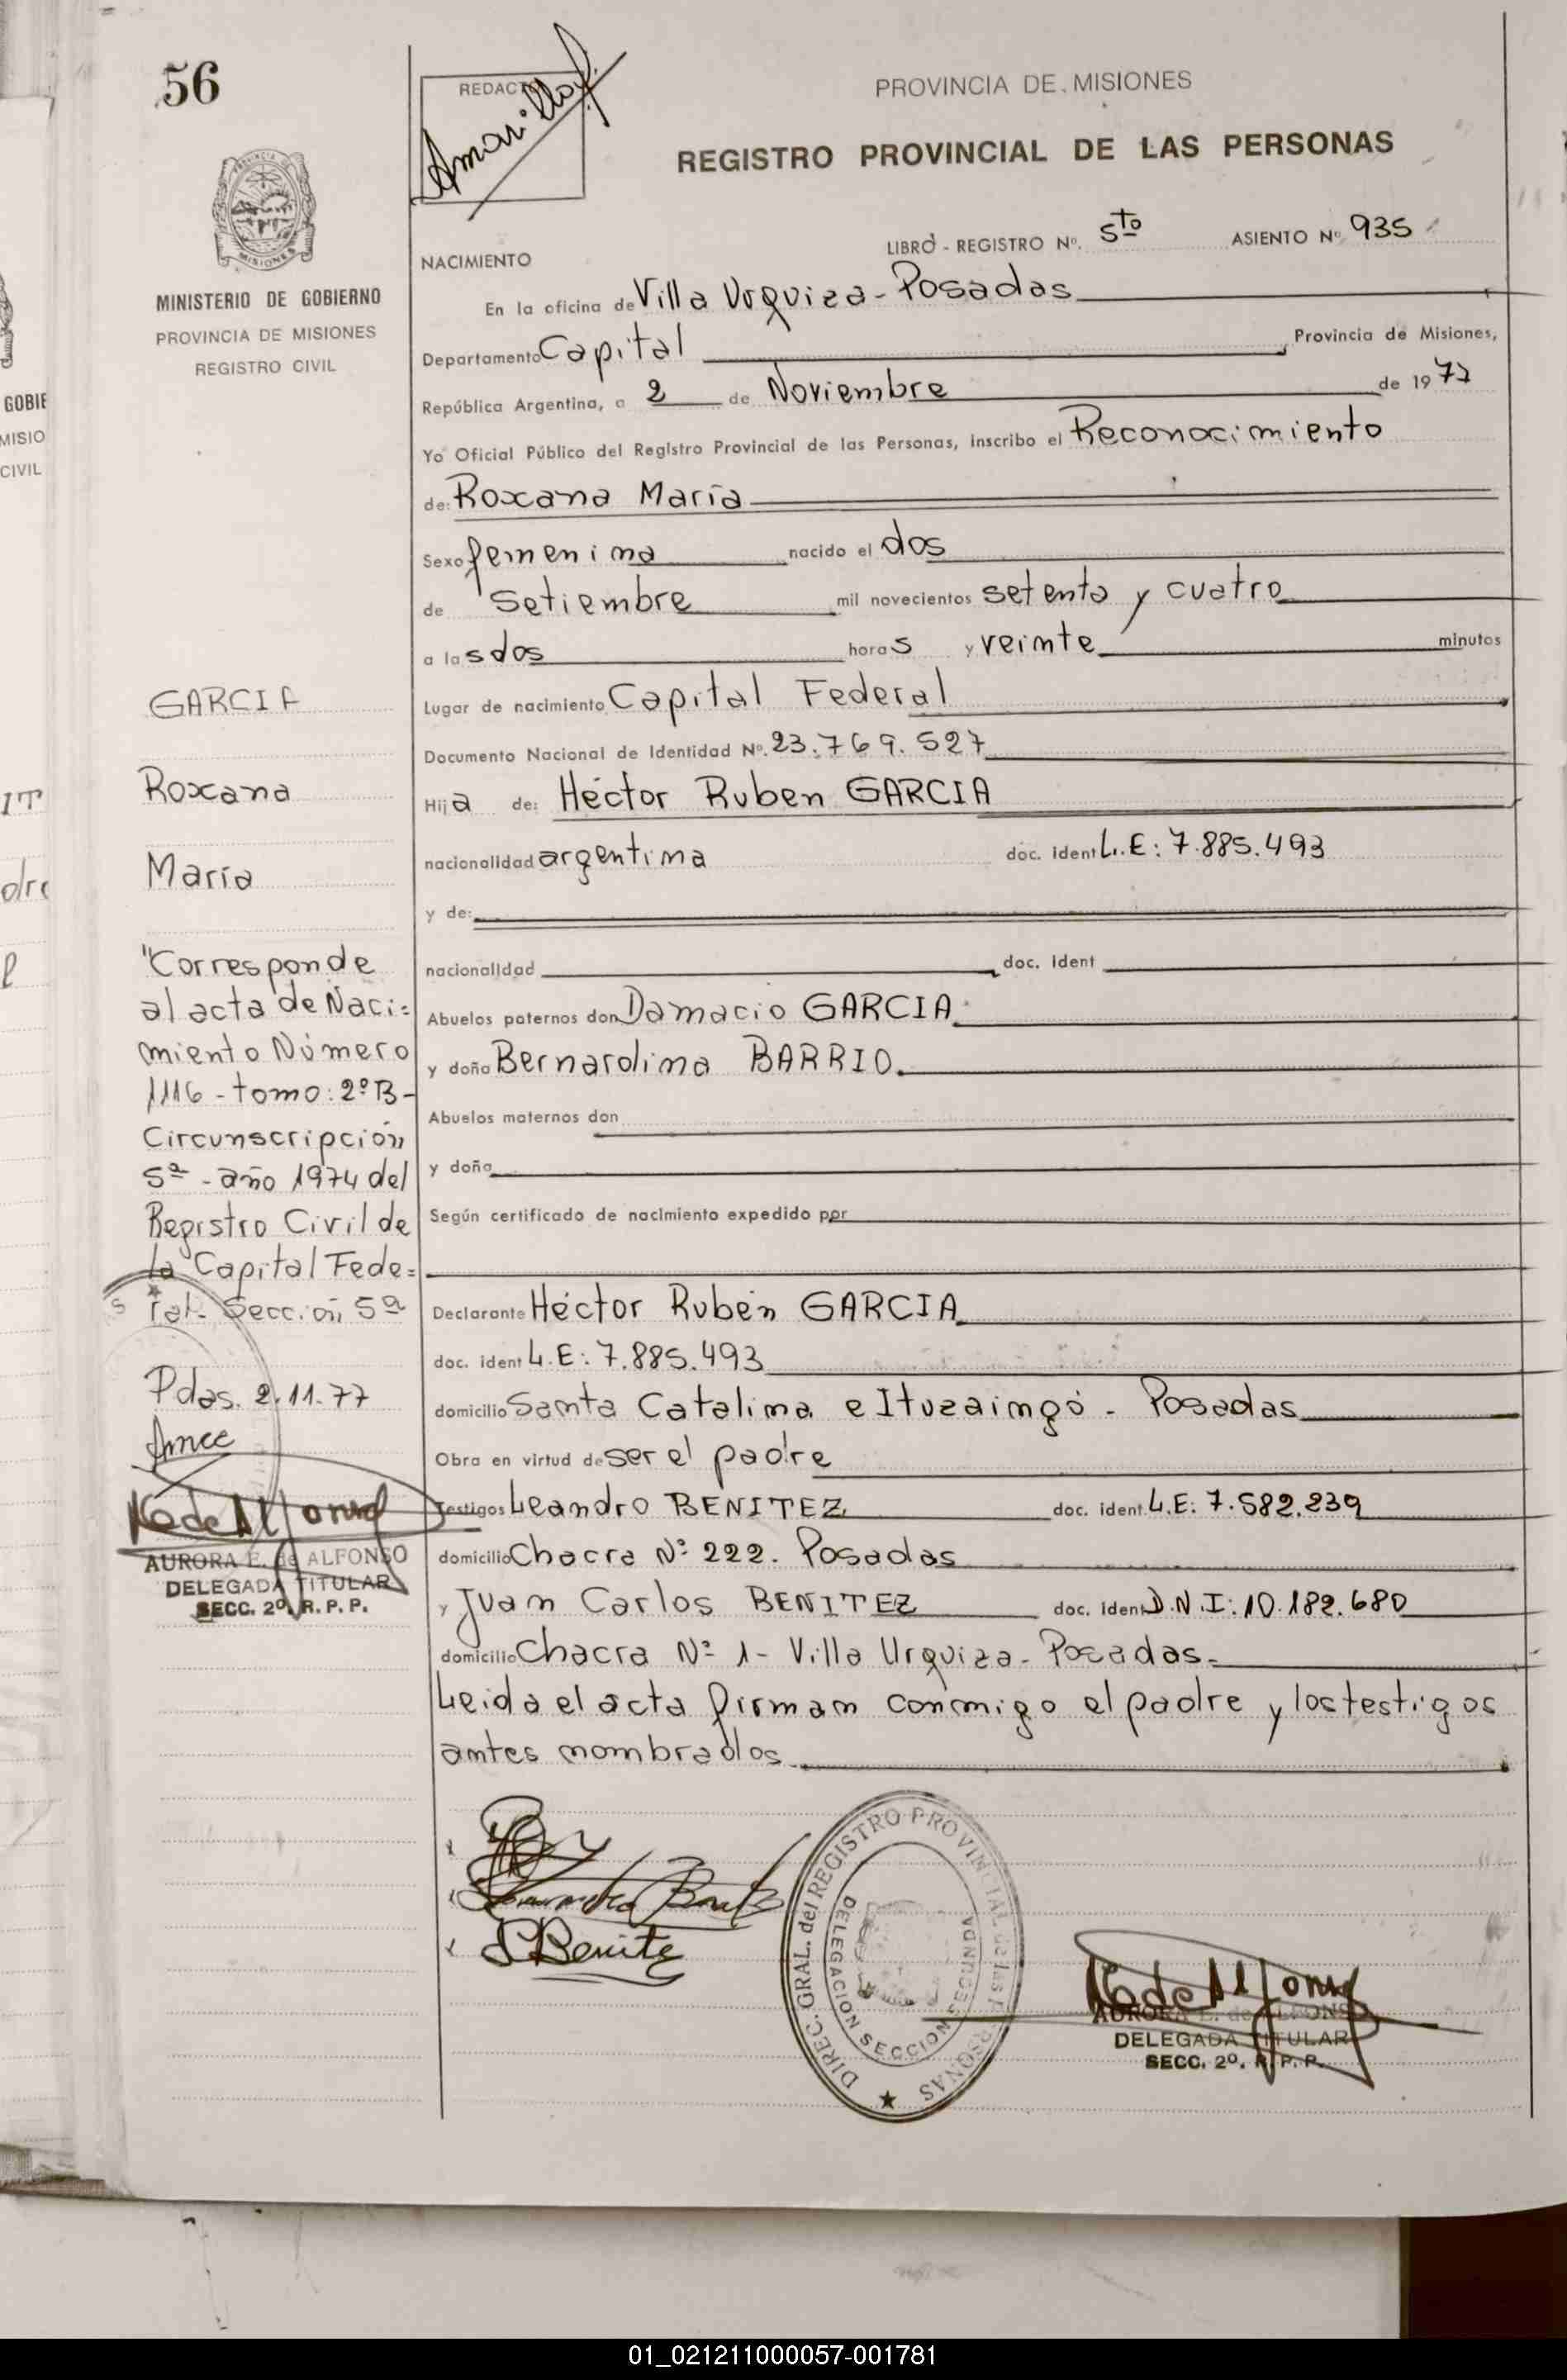 56
REDACTO
Amarilla
PROVINCIA DE MISIONES
REGISTRO PROVINCIAL DE LAS PERSONAS
LIBRO - REGISTRO Nº. 5to ASIENTO Nº 935
PROVINCIA DE MISIONES
MINISTERIO DE GOBIERNO
PROVINCIA DE MISIONES
REGISTRO CIVIL
NACIMIENTO
En la oficina de Villa Urquiza - Posadas
Departamento Capital, Provincia de Misiones,
República Argentina, a 2 de Noviembre de 1977
Yo Oficial Público del Registro Provincial de las Personas, inscribo el Reconocimiento
de: Roxana María
Sexo femenina nacido el dos
de Setiembre mil novecientos setenta y cuatro
a las dos horas y veinte minutos
Lugar de nacimiento Capital Federal
Documento Nacional de Identidad Nº. 23.769.527
Hija de: Héctor Ruben GARCIA
nacionalidad argentina doc. ident L.E: 7.885.493
y de:
nacionalidad doc. ident
Abuelos paternos don Damacio GARCIA.
y doña Bernardina BARRIO.
Abuelos maternos don
y doña
Según certificado de nacimiento expedido por
Declarante Héctor Rubén GARCIA
doc. ident L.E: 7.885.493
domicilio Santa Catalina e Ituzaingó - Posadas
Obra en virtud de ser el padre
Testigos Leandro BENITEZ doc. ident. L.E: 7.582.239
domicilio Chacra Nº 222. Posadas
y Juan Carlos BENITEZ doc. ident D.N.I: 10.182.680
domicilio Chacra Nº 1 - Villa Urquiza - Posadas.-
Leida el acta firman conmigo el padre y los testigos
antes nombrados
GARCIA
Roxana
María
"Corresponde
al acta de Naci=
miento Número
1116 - tomo: 2º B -
Circunscripción
5ª - año 1974 del
Registro Civil de
la Capital Fede=
ral. Sección 5ª
Pdas. 2.11.77
AURORA E. de ALFONSO
DELEGADA TITULAR
SECC. 2º. R. P. P.
DIREC. GRAL. del REGISTRO PROVINCIAL de las PERSONAS
DELEGACION SECCION SEGUNDA
AURORA E. de ALFONSO
DELEGADA TITULAR
SECC. 2º. R. P. P.
GOBIE
MISIO
CIVIL
IT
dre
l
01_021211000057-001781